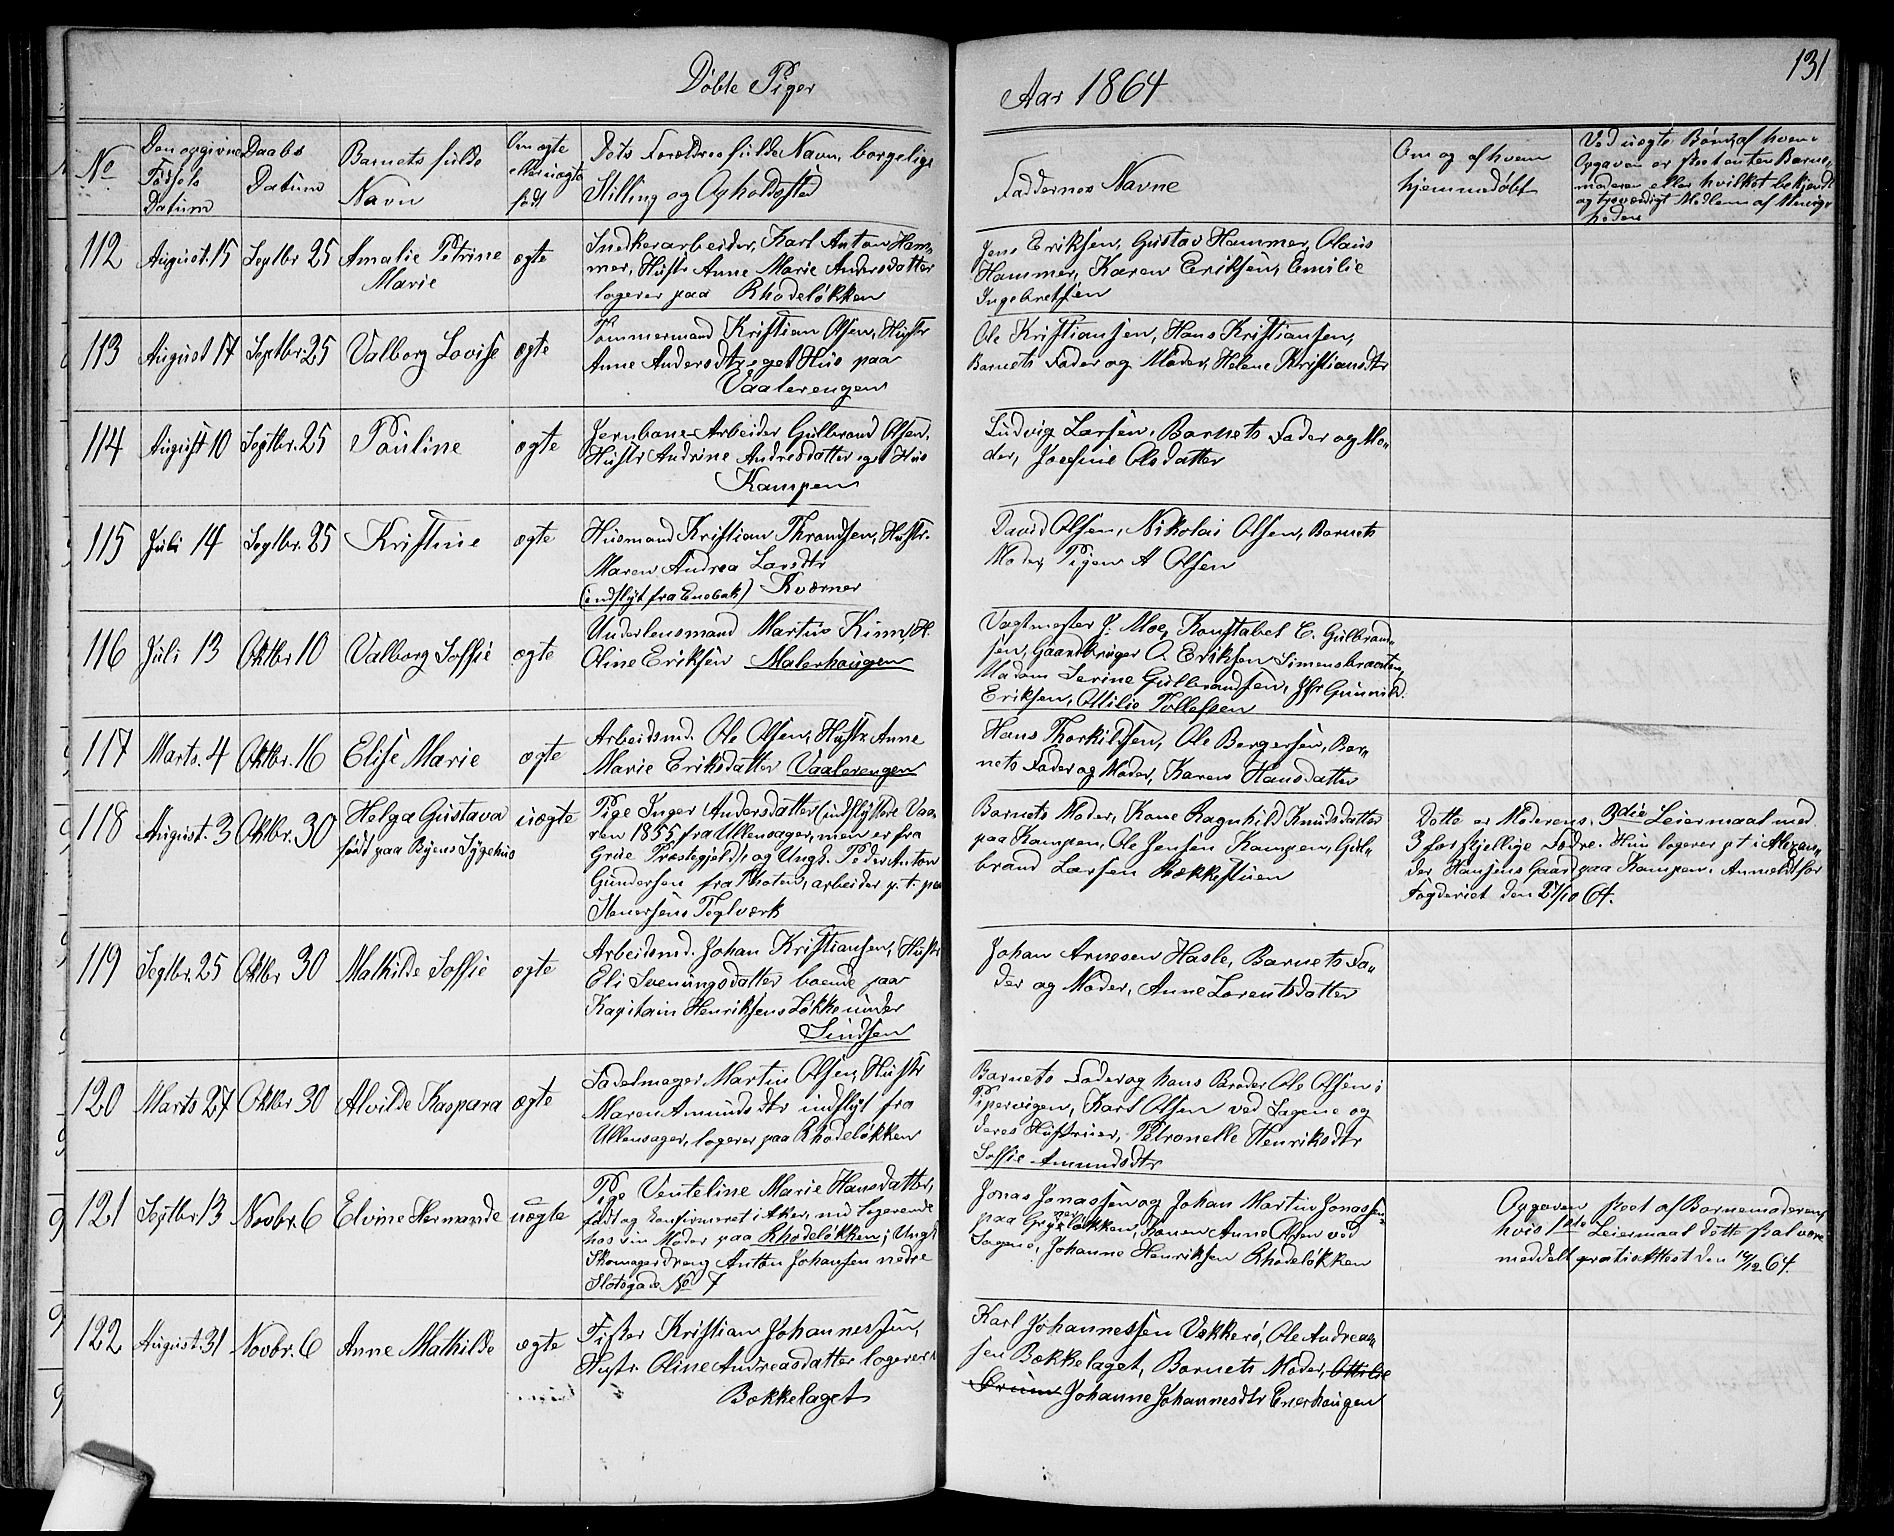 131
Døbte Piger
Aar 1864
No
Den opgivne
Fødsels
Datum
Daabs
Datum
Barnets fulde
Navn
Om ægte
eller uægte
født
Dets Forældres fulde Navn, borgelige
Stilling og Opholdssted
Faddernes Navne
Om og af hvem
hjemmedøbt
Ved uægte Børn, af hvem
Opgaven er skeet enten Barne-
moderen eller hvilket bekjendt
og troværdigt Medlem af Menig-
heden
112 August. 15 Septbr 25 Amalie Petrine
Marie
ægte
Snedkerarbeider, Karl Anton Ham-
mer, Hustr Anne Marie Andersdatter
logerer paa Rhodeløkken
Jens Eriksen, Gustav Hammer, Olaus
Hammer, Karen Eriksen, Emilie
Ingebretsen
113 August 17 Septbr. 25 Valborg Lovise ægte
Tømmermand Kristian Olsen, Hustr
Anne Andersdtr eget Hus paa
Vaalerengen
Ole Kristiansen, Hans Kristiansen,
Barnets Fader og Moder, Helene Kristiansdtr
114 August 10 Septbr. 25 Pauline ægte
Jernbane Arbeider Gulbrand Olsen,
Hustr Andrine Andresdatter eget Hus
Kampen
Ludvig Larsen, Barnets Fader og Mo-
der, Josefine Olsdatter
115 Juli 14 Septbr. 25 Kristine ægte
Husmand Kristian Throndsen, Hustr.
Maren Andrea Larsdtr
(indflyt fra Enebak) Kværner
David Olsen, Nikolai Olsen, Barnets
Moder, Pigen A Olsen
116 Juli 13 Oktbr 10 Valborg Soffie ægte
Underlensmand Martius Kinn, H.
Oline Eriksen Malerhaugen
Vagtmester J. Moe, Konstabel E. Gulbrand-
sen, Gaardbruger O. Eriksen Simensbraaten,
Madam Serine Gulbrandsen, Jfr Gunnild
Eriksen, Ottilie Tollefsen
117 Marts. 4 Oktbr. 16 Elise Marie ægte
Arbeidsmd. Ole Olsen, Hustr Anne
Marie Eriksdatter Vaalerengen
Hans Thorkildsen, Ole Bergersen, Bar-
nets Fader og Moder, Karen Hansdatter
118 August. 3 Oktbr. 30 Helga Gustava
født paa Byens Sygehus
uægte
Pige Inger Andersdatter (indflyttede Vaa-
ren 1855 fra Ullensager, men er fra
Grue Prestegjeld) og Ungk. Peder Anton
Gundersen fra Thoten, arbeider p. t. paa
Stenersens Teglværk
Barnets Moder, Kone Ragnhild Knudsdatter
paa Kampen, Ole Jensen Kampen, Gul-
brand Larsen Bækkestuen
Dette er Moderens 3die Leiermaal med
3 forskjellige Fædre. Hun logerer pt i Alexan-
der Hansens Gaard paa Kampen. Anmeldt for
Fogderiet den 27/10 64.
119 Septbr. 25 Oktbr 30 Mathilde Soffie ægte
Arbeidsmd. Johan Kristiansen, Hustr
Eli Svenungsdatter boende paa
Kapitain Henriksens Løkke under
Sinsen
Johan Arnesen Hasle, Barnets Fa-
der og Moder, Anne Lorentsdatter
120 Marts 27 Oktbr 30 Alvilde Kaspara ægte
Sadelmager Martin Olsen, Hustr
Maren Amundsdtr indflyt fra
Ullensager, logerer paa Rhodeløkken
Barnets Fader og hans Broder Ole Olsen i
Pipervigen, Karl Olsen ved Sagene og
deres Hustruer, Petronelle Henriksdtr
Soffie Amundsdtr
121 Septbr. 13 Novbr. 6 Elvine Hermande uægte
Pige Venteline Marie Hansdatter,
født og konfirmeret i Aker, nu logerende
hos sin Moder paa Rhodeløkken; Ungk
Skomagerdreng Anton Johansen nedre
Slotsgade No 7
Jonas Jonassen og Johan Martin Jonassen
paa Grynerløkken, Konen Anne Olsen ved
Sagene, Johanne Henriksen Rhodeløkken
Opgaven skeet af Barnemoderen,
hvis 1ste Leiermaal dette skal være
meddelt gratis Attest den 14/12 64.
122 August. 31 Novbr. 6 Anne Mathilde ægte
Fisker Kristian Johannessen,
Hustr Oline Andreasdatter logerer
Bækkelaget
Karl Johannessen Vækkerø, Ole Andreas-
sen Bækkelaget, Barnets Moder, Ottilie
Johanne Johannesdtr Enerhaugen